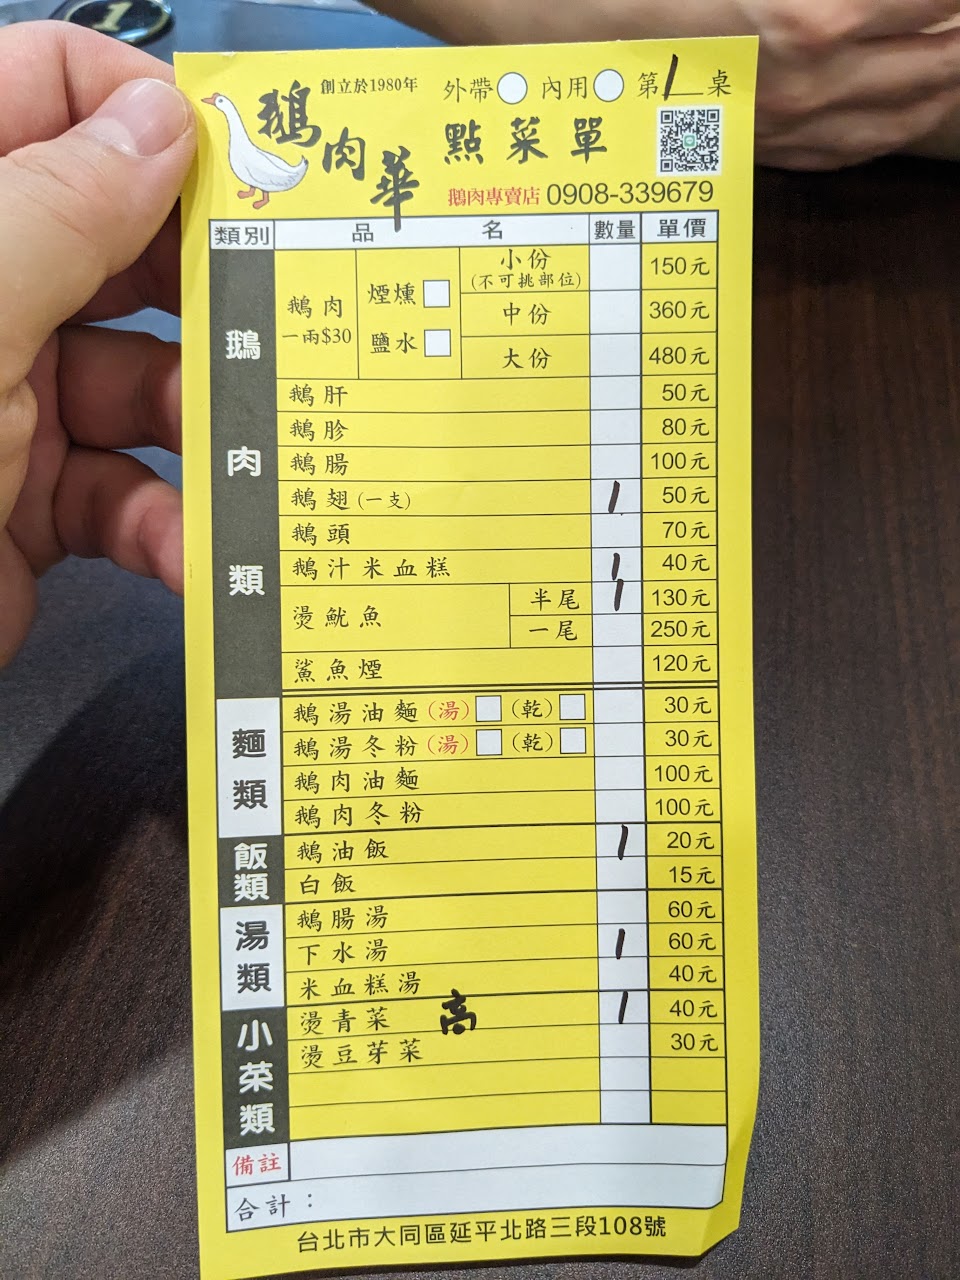 1
創立於1980年 外帶 內用 第1桌
鵝肉華 點菜單
鵝肉專賣店 0908-339679
類別 品名 數量 單價
鵝肉類
鵝肉 一兩$30 煙燻 鹽水
小份 (不可挑部位) 150元
中份 360元
大份 480元
鵝肝 50元
鵝胗 80元
鵝腸 100元
鵝翅(一支) 1 50元
鵝頭 70元
鵝汁米血糕 1 40元
燙魷魚 半尾 1 130元
一尾 250元
鯊魚煙 120元
麵類
鵝湯油麵(湯) (乾) 30元
鵝湯冬粉(湯) (乾) 30元
鵝肉油麵 100元
鵝肉冬粉 100元
飯類
鵝油飯 1 20元
白飯 15元
湯類
鵝腸湯 60元
下水湯 1 60元
米血糕湯 40元
小菜類
燙青菜 高 1 40元
燙豆芽菜 30元
備註
合計：
台北市大同區延平北路三段108號